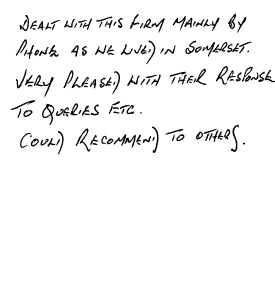 DEALT WITH THIS FIRM MAINLY BY
PHONE AS WE LIVED IN SOMERSET.
VERY PLEASED WITH THEIR RESPONSE
TO QUERIES ETC.
COULD RECOMMEND TO OTHERS.